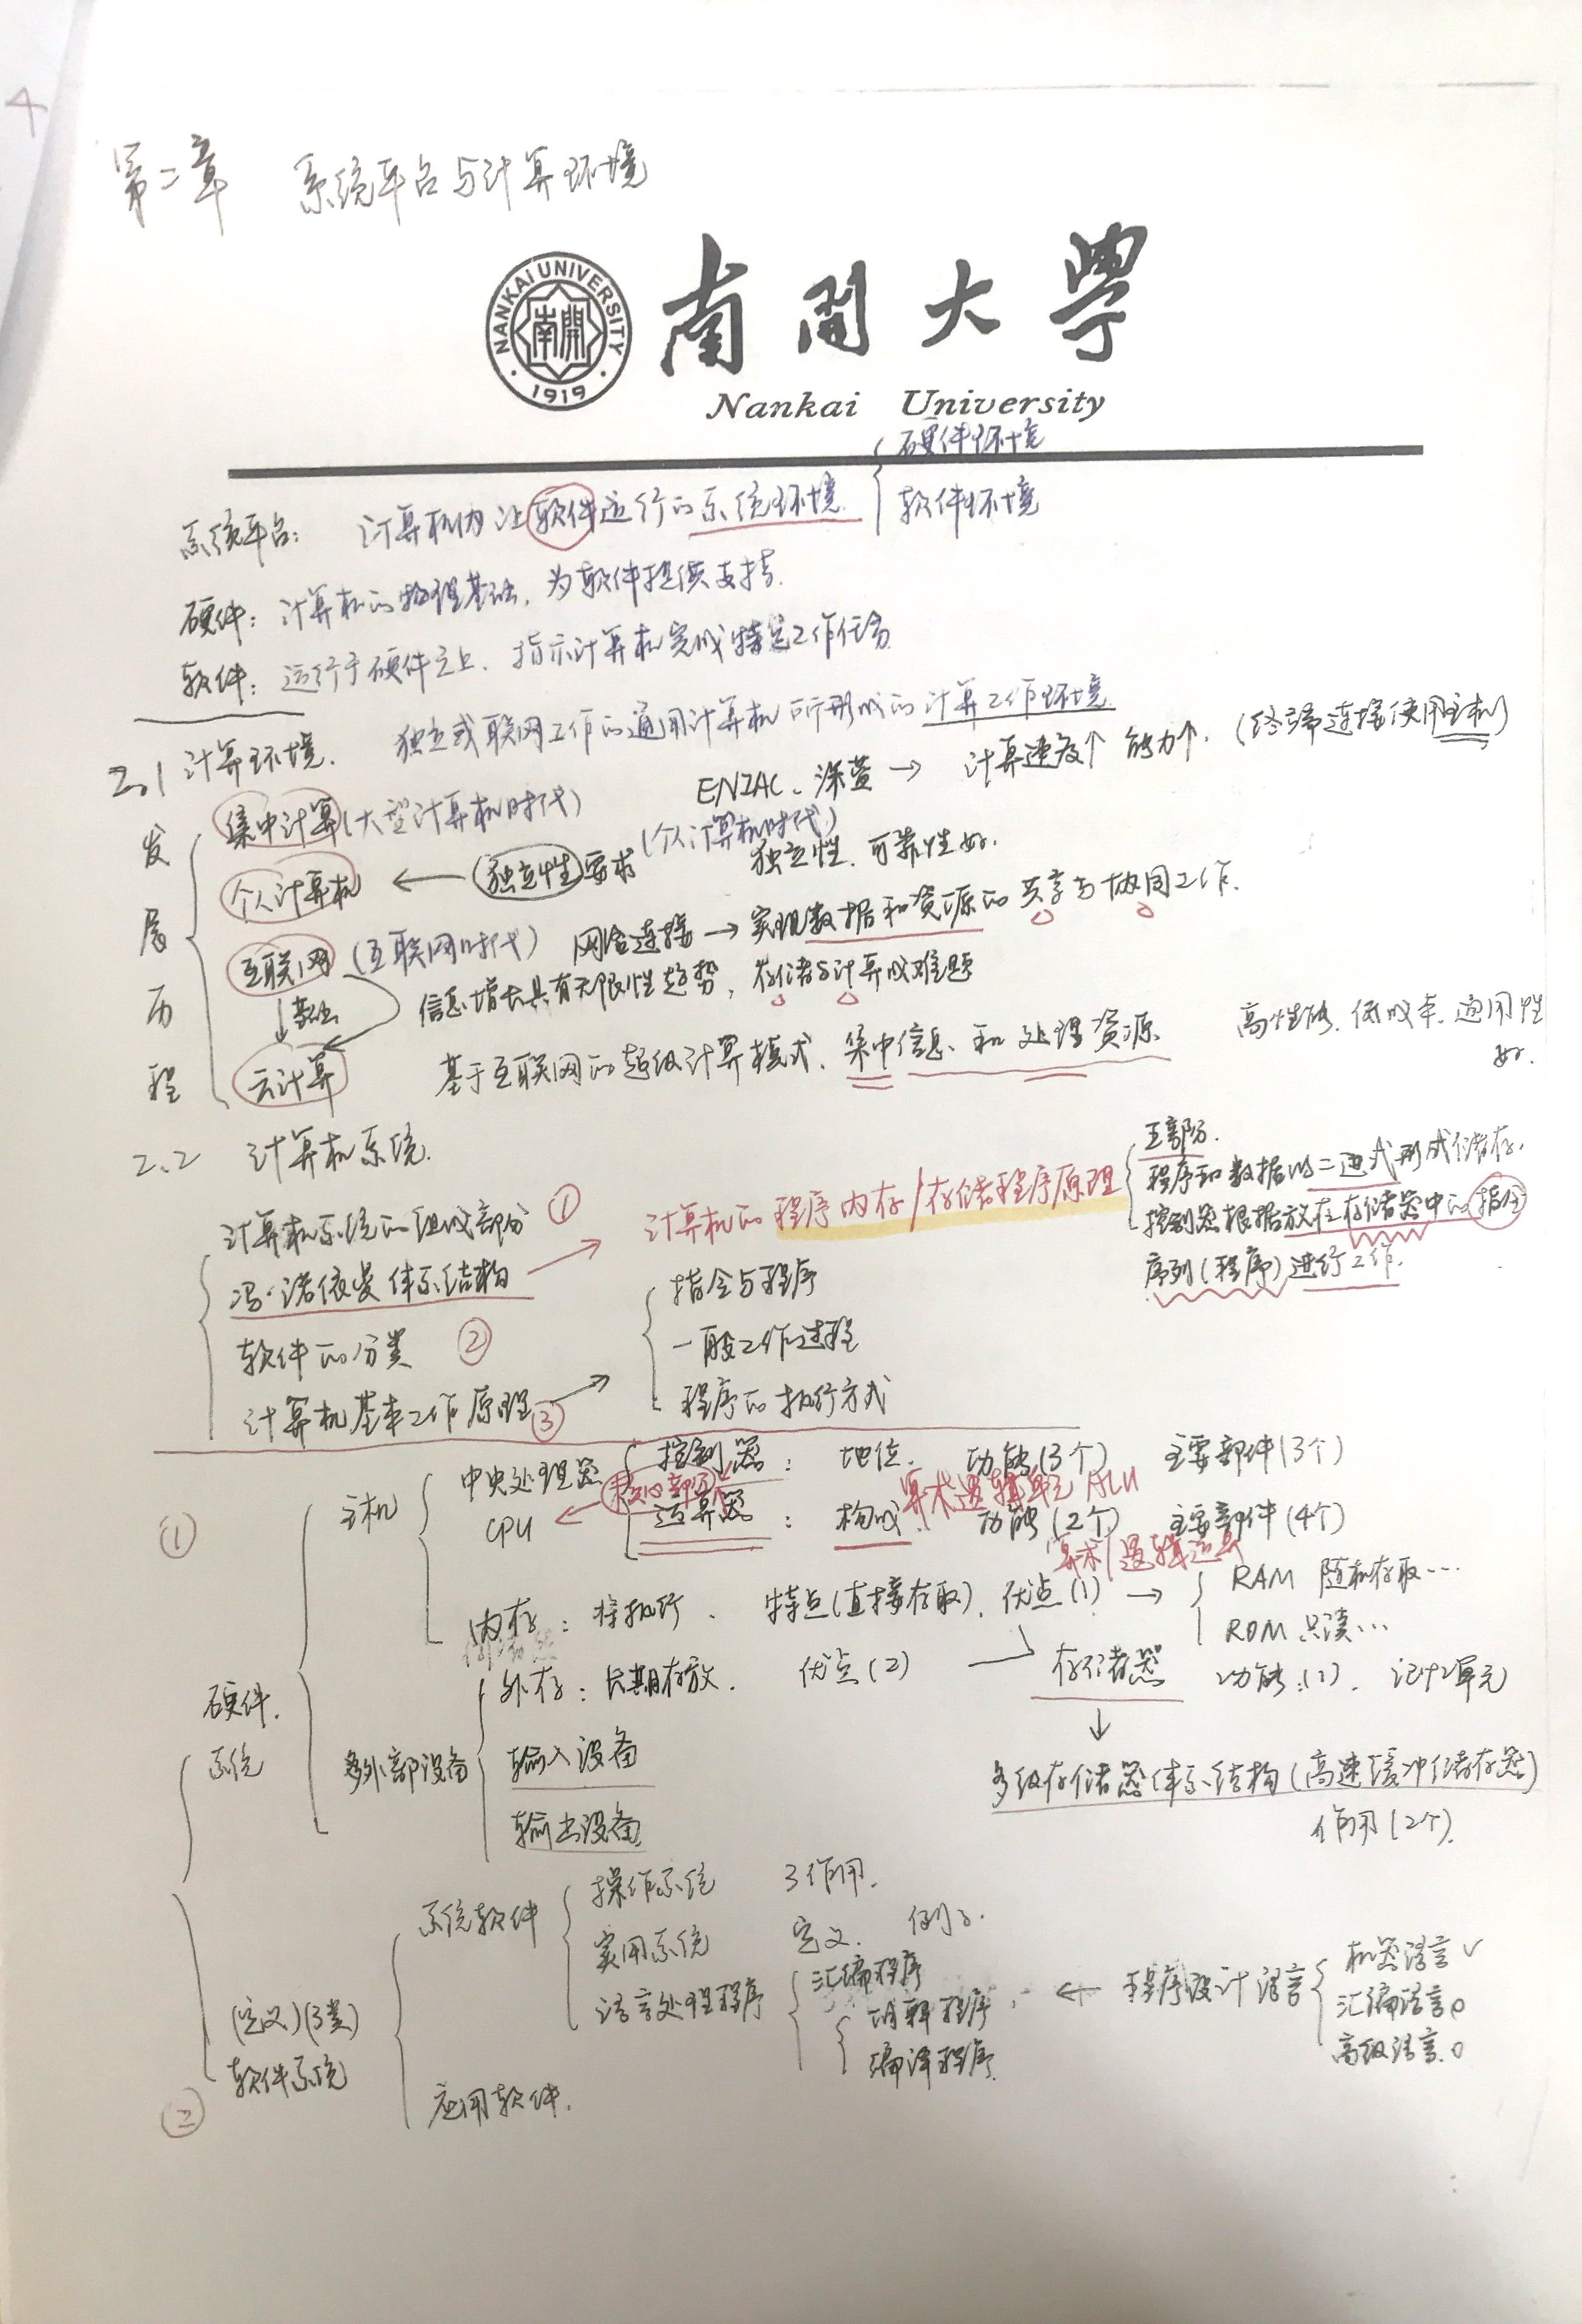 第二章 系统平台与计算环境
NANKAI UNIVERSITY
南開
1919
南開大學
Nankai University
硬件环境
系统平台： 计算机内让软件运行的系统环境 软件环境
硬件：计算机的物理基础，为软件提供支持.
软件：运行于硬件之上.指示计算机完成特定工作任务
2.1 计算环境. 独立或联网工作的通用计算机所形成的计算工作环境
发展历程
集中计算(大型计算机时代) ENIAC、深蓝→ 计算速度↑ 能力↑.(终端连接使用主机)
个人计算机 ← 独立性要求 (个人计算机时代) 独立性.可靠性好.
互联网 (互联网时代) 网络连接→实现数据和资源的共享与协同工作.
↓基础 信息增长具有无限性趋势，存储与计算成难题
云计算 基于互联网的超级计算模式.集中信息和处理资源. 高性能.低成本.通用性
好.
2.2 计算机系统.
五部分.
计算机系统的组成部分 ① 计算机的程序内存/存储程序原理 程序和数据以二进式形式储存.
冯·诺依曼体系结构 控制器根据放在存储器中的指令
指令与程序 序列(程序)进行工作.
软件的分类 ② 一般工作过程
计算机基本工作原理③ → 程序的执行方式
① 主机 中央处理器 控制器： 地位. 功能(3个) 主要部件(3个)
CPU ← 核心部分 算术逻辑单元 ALU
运算器： 构成. 功能(2个) 主要部件(4个)
算术/逻辑运算
内存：待执行. 特点(直接存取).优点(1) → RAM 随机存取…
ROM 只读…
硬件.系统
外存：长期存放. 优点(2) → 存储器 功能:(1). 记忆单元
外部设备 输入设备 ↓
多级存储器体系结构(高速缓冲储存器)
输出设备 作用(2个).
系统软件 操作系统 3作用.
实用系统 定义. 例子.
语言处理程序 汇编程序 ← 程序设计语言 机器语言√
(定义)(3类) 翻释程序 汇编语言o
软件系统 编译程序 高级语言.o
② 应用软件.